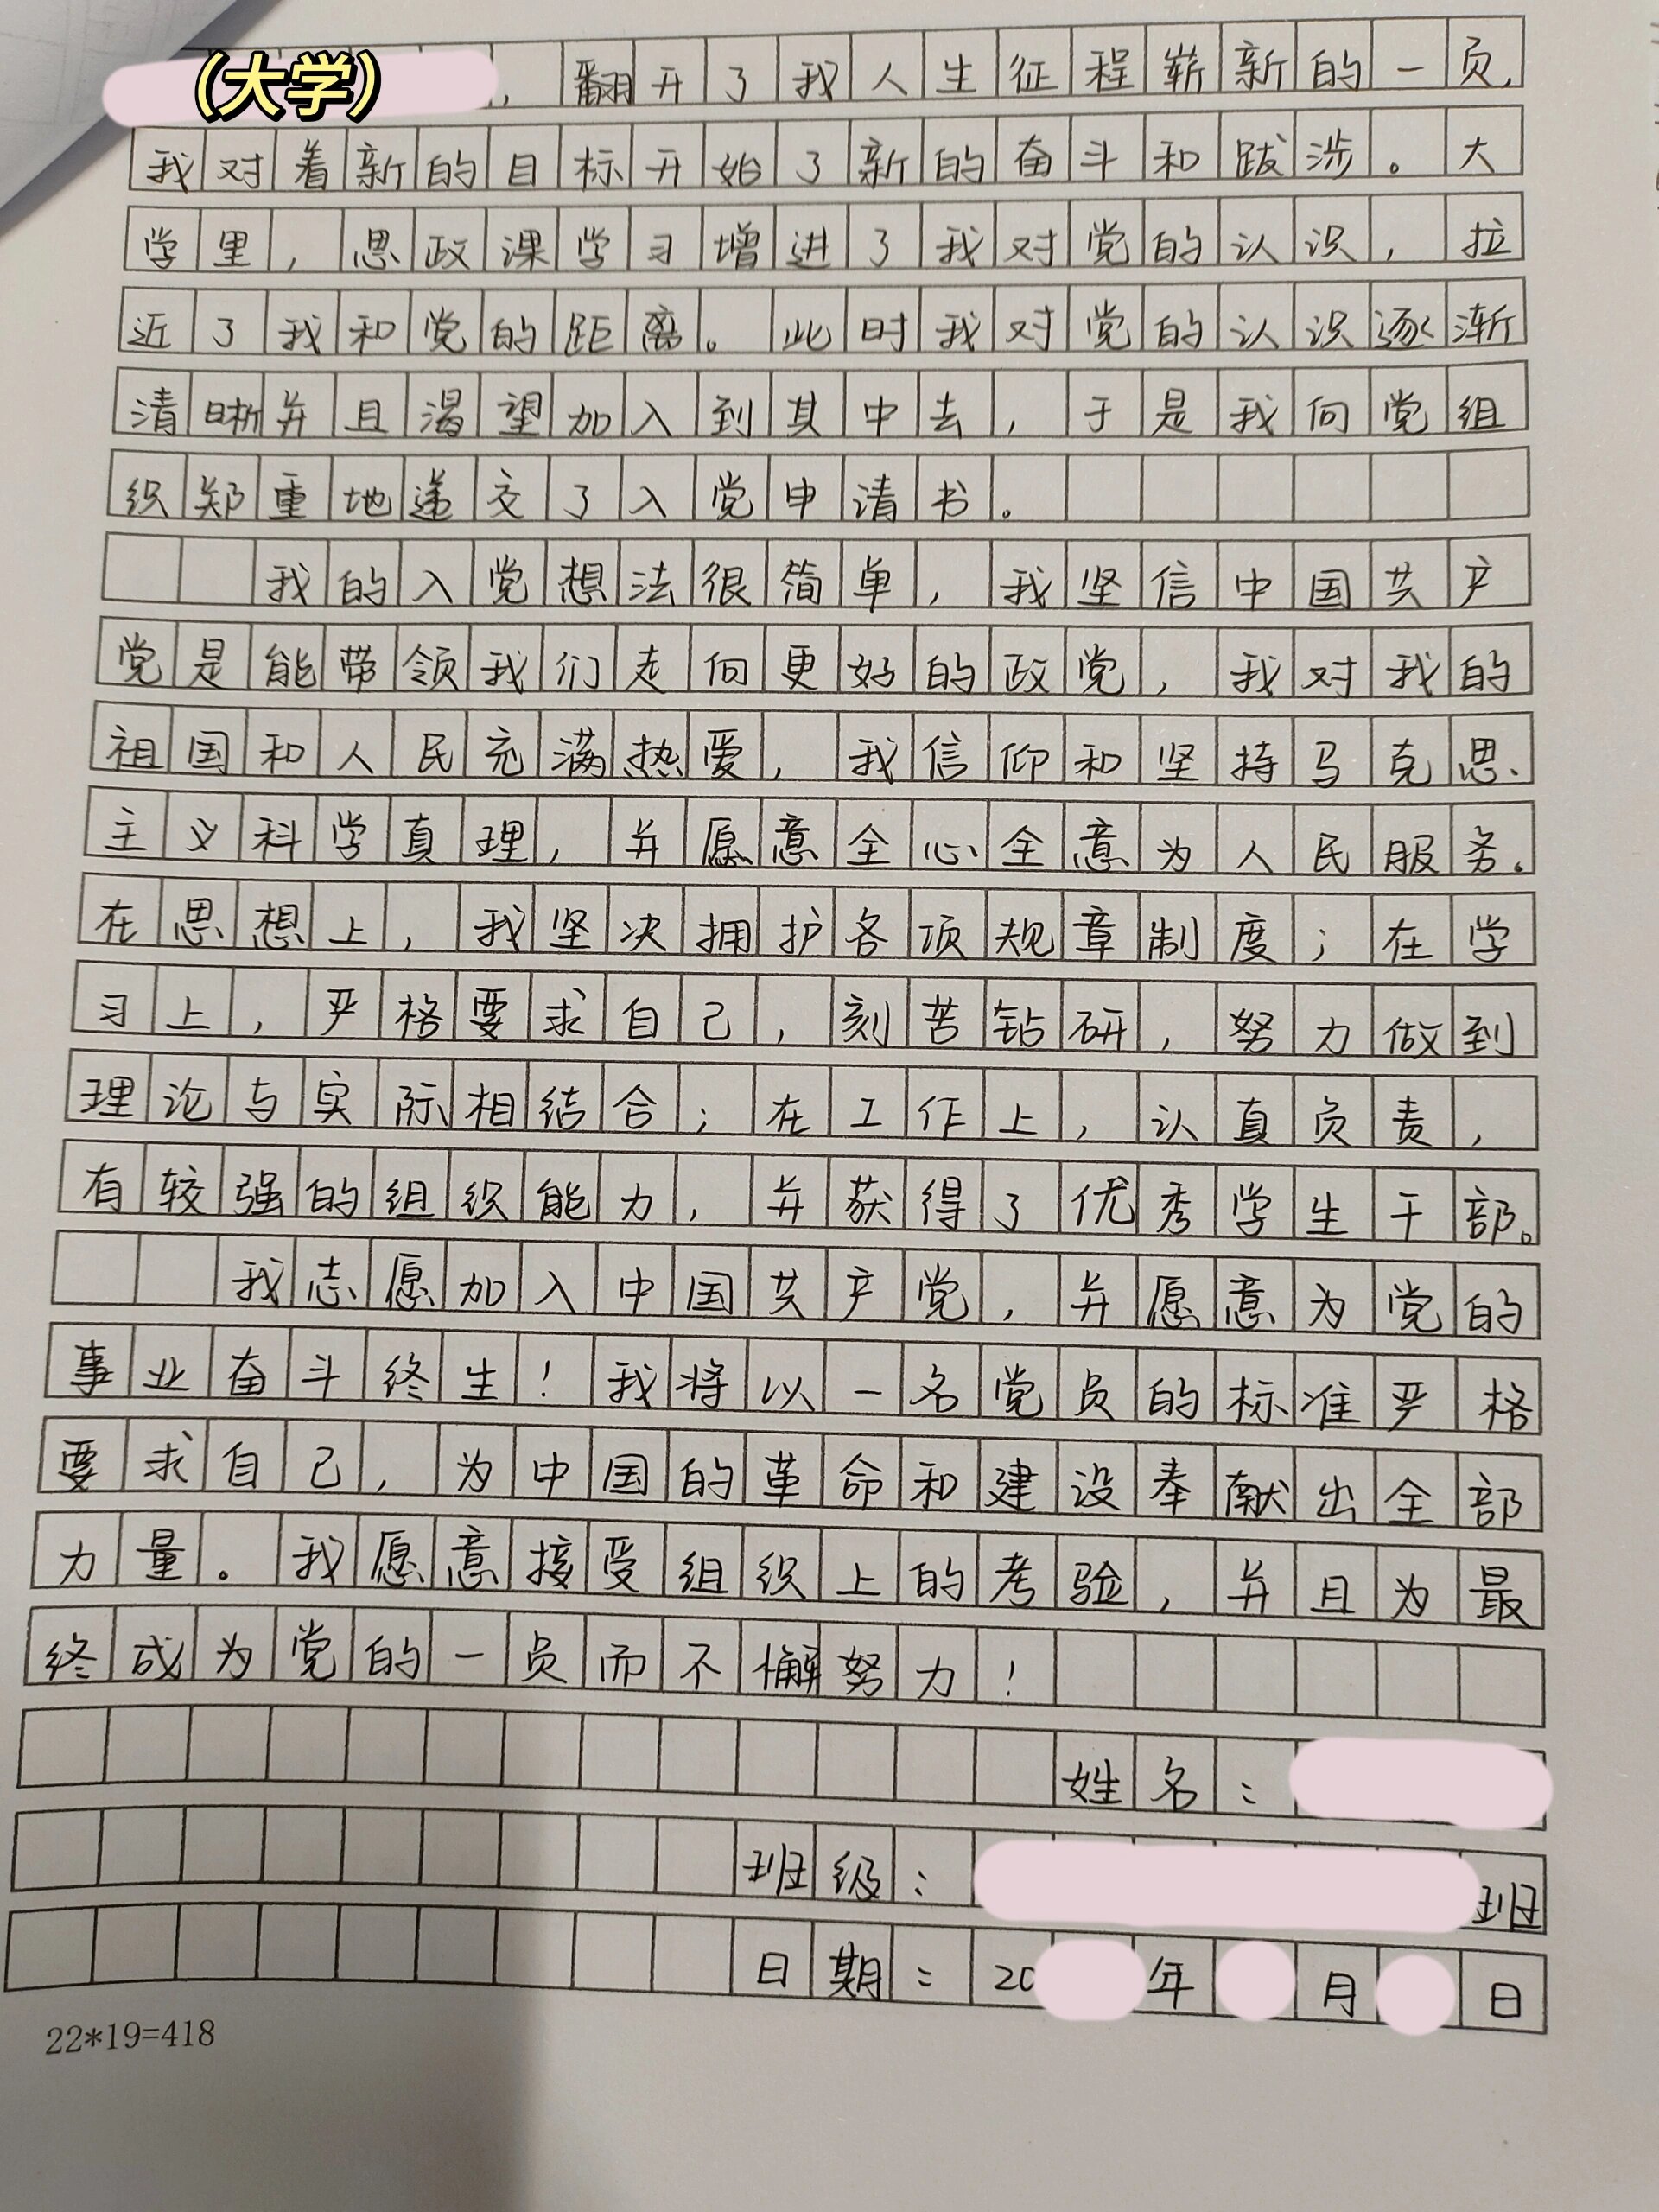 (大学)，翻开了我人生征程崭新的一页，
我对着新的目标开始了新的奋斗和跋涉。大
学里，思政课学习增进了我对党的认识，拉
近了我和党的距离。此时我对党的认识逐渐
清晰并且渴望加入到其中去，于是我向党组
织郑重地递交了入党申请书。
我的入党想法很简单，我坚信中国共产
党是能带领我们走向更好的政党，我对我的
祖国和人民充满热爱，我信仰和坚持马克思
主义科学真理，并愿意全心全意为人民服务。
在思想上，我坚决拥护各项规章制度；在学
习上，严格要求自己，刻苦钻研，努力做到
理论与实际相结合；在工作上，认真负责，
有较强的组织能力，并获得了优秀学生干部。
我志愿加入中国共产党，并愿意为党的
事业奋斗终生！我将以一名党员的标准严格
要求自己，为中国的革命和建设奉献出全部
力量。我愿意接受组织上的考验，并且为最
终成为党的一员而不懈努力！
姓名：
班级：班
日期：20年月日
22*19=418